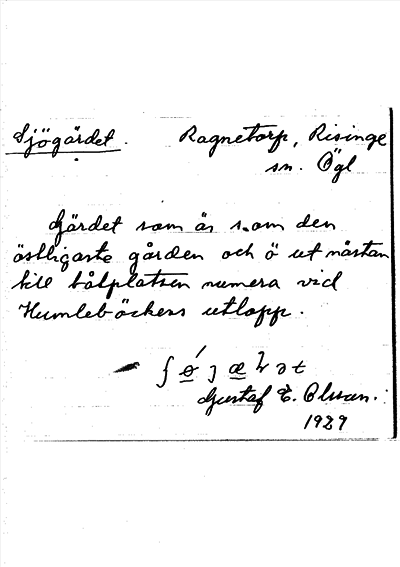 Sjögärdet. Ragnetorp, Risinge
sn. Ögl
Gärdet som är s.om den
östligaste gården och ö ut nästan
till båtplatsen numera vid
Humlebäckens utlopp.
Gustaf E. Olsson.
1929